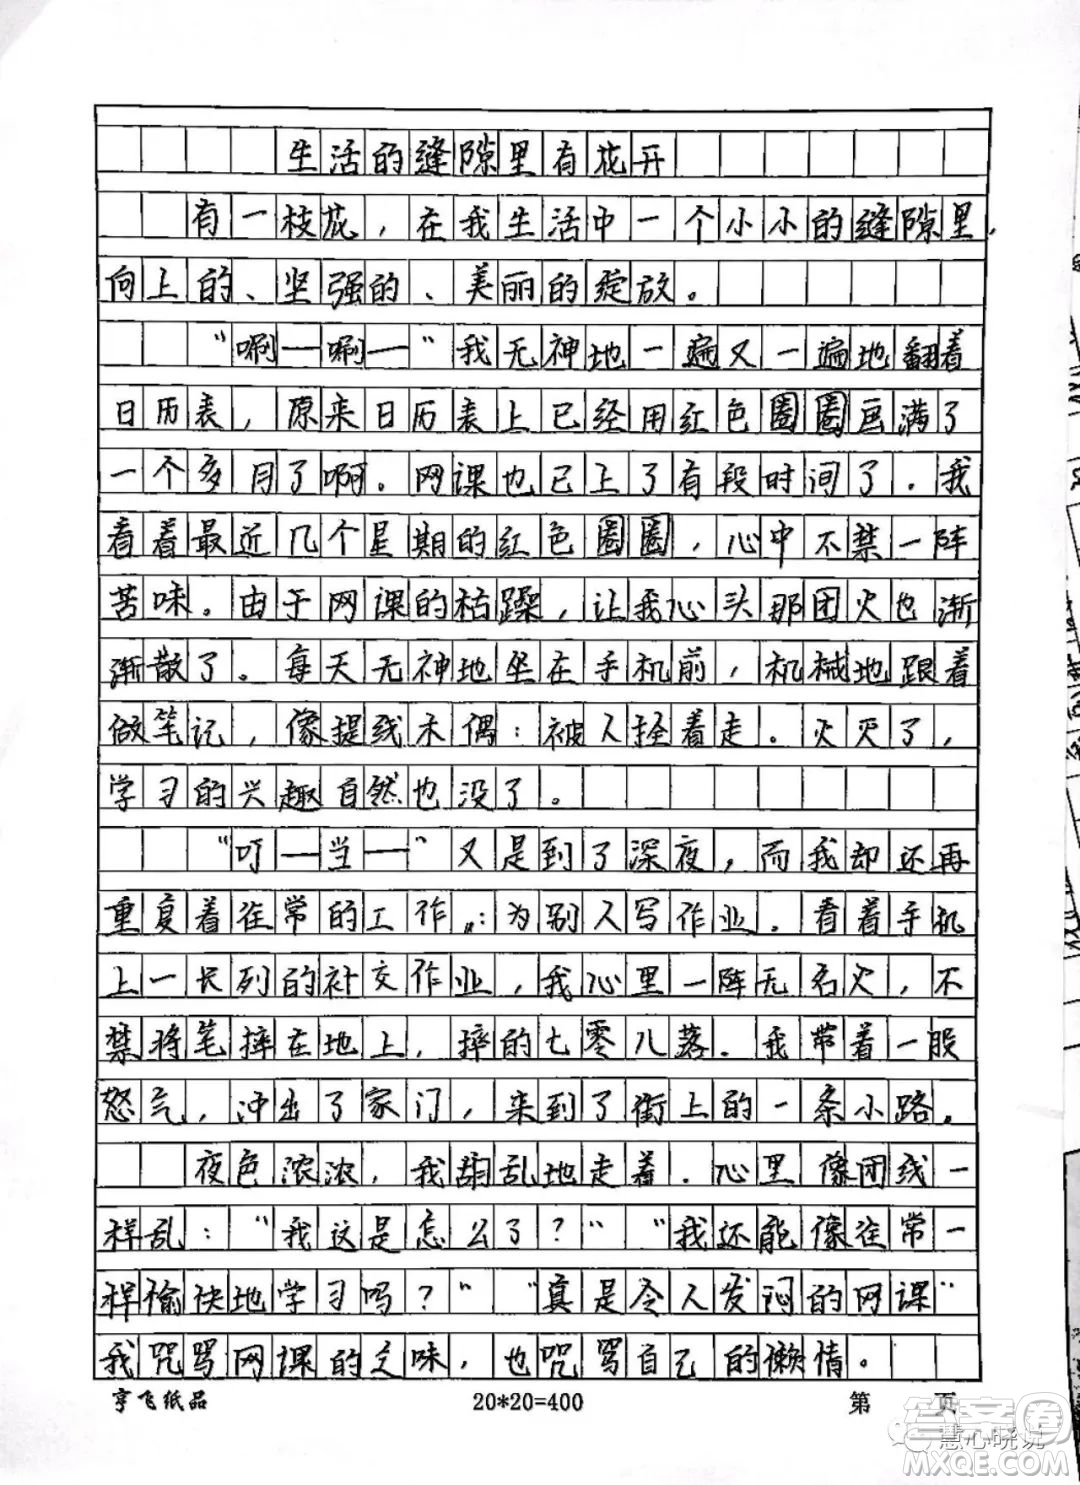 生活的缝隙里有花开
有一枝花，在我生活中一个小小的缝隙里，
向上的、坚强的、美丽的绽放。
“唰——唰——”我无神地一遍又一遍地翻着
日历表，原来日历表上已经用红色圈圈画满了
一个多月了啊。网课也已上了有段时间了。我
看着最近几个星期的红色圈圈，心中不禁一阵
苦味。由于网课的枯躁，让我心头那团火也渐
渐散了。每天无神地坐在手机前，机械地跟着
做笔记，像提线木偶：被人拴着走。火灭了，
学习的兴趣自然也没了。
“叮——当——”又是到了深夜，而我却还再
重复着往常的工作：为别人写作业。看着手机
上一长列的补交作业，我心里一阵无名火，不
禁将笔摔在地上，摔的七零八落。我带着一股
怒气，冲出了家门，来到了街上的一条小路。
夜色浓浓，我胡乱地走着。心里像团线一
样乱：“我这是怎么了？”“我还能像往常一
样愉快地学习吗？”“真是令人发闷的网课”
我咒骂网课的乏味，也咒骂自己的懒惰。
亨飞纸品 20*20=400 第 页
答案圈
慧心晓说
MXQE.COM